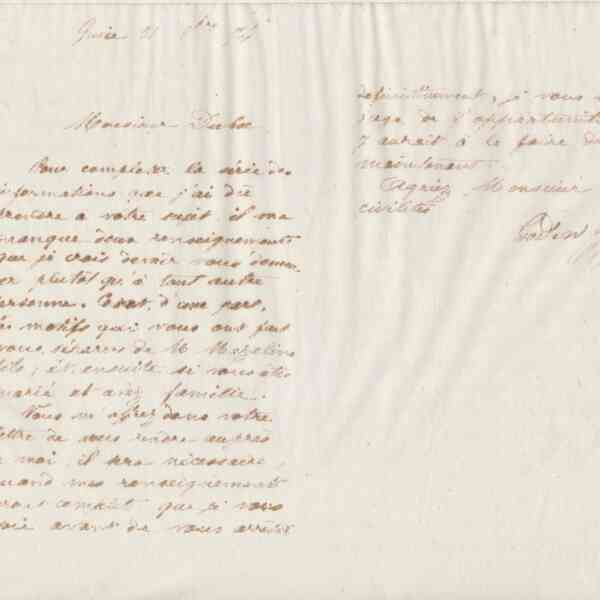 Guise 21
Monsieur Duboc
Pour completer la série des
informations que j'ai dû
prendre a votre sujet il me
manque deux renseignements
que je crois devoir vous deman
er plutôt qu'à tout autre
ersonne. C'est, d'une part,
motifs qui vous ont fait
vous séparer de M
fils, et ensuite si vous êtes
marié et avez famille.
Vous m'offrez dans votre
lettre de vous rendre auprès
e moi, il sera nécessaire,
quand mes renseignements
seront complet que je vous
voie avant de vous arrêter
définitivement, je vous
l'opportunité
y aurait à le faire
maintenant.
Agréez Monsieur
civilités
Godin